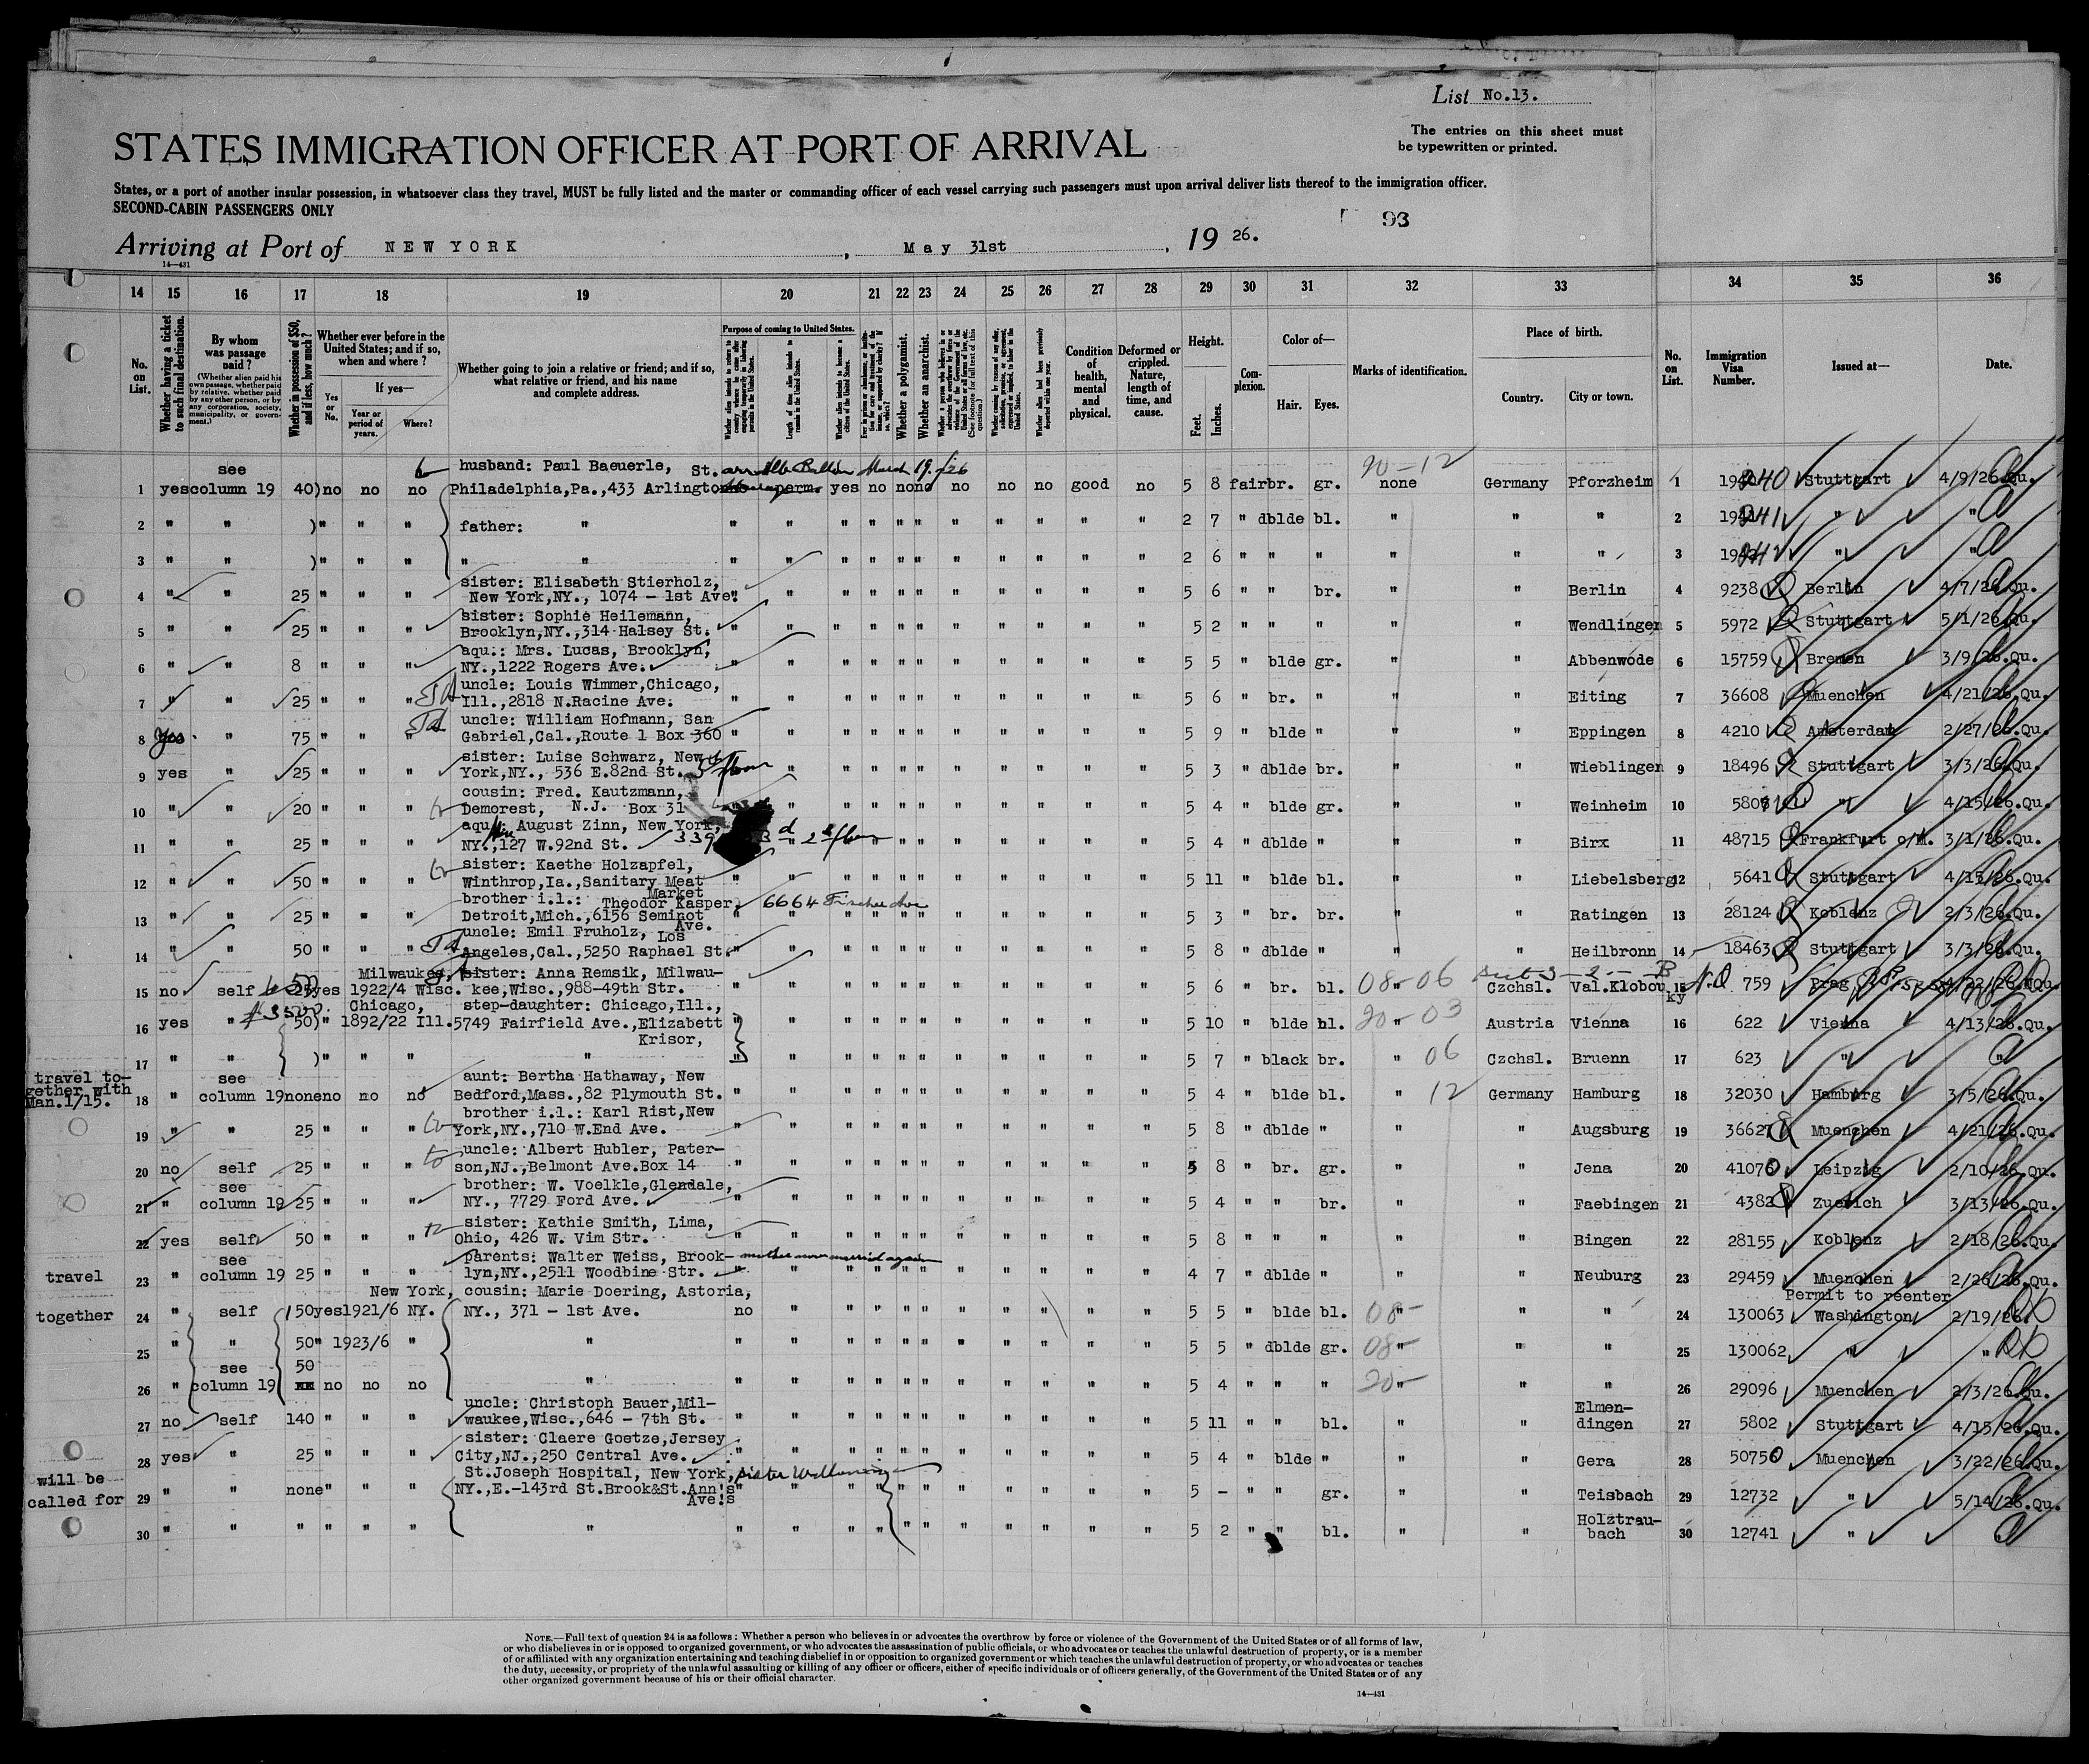 List No.13.
The entries on this sheet must
be typewritten or printed.
STATES IMMIGRATION OFFICER AT PORT OF ARRIVAL
States, or a port of another insular possession, in whatsoever class they travel, MUST be fully listed and the master or commanding officer of each vessel carrying such passengers must upon arrival deliver lists thereof to the immigration officer.
SECOND-CABIN PASSENGERS ONLY
93
Arriving at Port of NEW YORK, May 31st, 19 26.
14—431
14 15 16 17 18 19 20 21 22 23 24 25 26 27 28 29 30 31 32 33 34 35 36
No. on List.
Whether having a ticket to such final destination.
By whom was passage paid?
(Whether alien paid his own passage, whether paid by relative, whether paid by any other person, or by any corporation, society, municipality, or government.)
Whether in possession of $50, and if less, how much?
Whether ever before in the United States; and if so, when and where?
Yes or No.
If yes—
Year or period of years.
Where?
Whether going to join a relative or friend; and if so, what relative or friend, and his name and complete address.
Purpose of coming to United States.
Length of time alien intends to remain in the United States.
Whether alien intends to become a citizen of the United States.
Whether a polygamist.
Whether an anarchist.
Condition of health, mental and physical.
Deformed or crippled. Nature, length of time, and cause.
Height.
Feet.
Inches.
Complexion.
Color of—
Hair.
Eyes.
Marks of identification.
Place of birth.
Country.
City or town.
No. on List.
Immigration Visa Number.
Issued at—
Date.
see husband: Paul Baeuerle, St. March 19/26 20-12
1 yes column 19 40) no no no Philadelphia,Pa.,433 Arlington perm. yes no no no no no no good no 5 8 fair br. gr. none Germany Pforzheim 1 240 Stuttgart 4/9/26.Qu.
2 " " )" " " father: " " " " " " " " " " " " 2 7 " dblde bl. " " " 2 241 " "
3 " " )" " " " " " " " " " " " " " " " 2 6 " " " " " " 3 242 " "
sister: Elisabeth Stierholz,
4 " " 25 " " " New York,NY., 1074 - 1st Ave. " " " " " " " " " " " 5 6 " " br. " " Berlin 4 9238 Berlin 4/7/26.Qu.
sister: Sophie Heilemann,
5 " " 25 " " " Brooklyn,NY.,314 Halsey St. " " " " " " " " " " " 5 2 " " " " " Wendlingen 5 5972 Stuttgart 5/1/26.Qu.
aqu.: Mrs. Lucas, Brooklyn,
6 " " 8 " " " NY.,1222 Rogers Ave. " " " " " " " " " " " 5 5 " blde gr. " " Abbenwode 6 15759 Bremen 3/9/26.Qu.
uncle: Louis Wimmer,Chicago,
7 " " 25 " " " Ill.,2818 N.Racine Ave. " " " " " " " " " " " 5 6 " br. " " " Eiting 7 36608 Muenchen 4/21/26.Qu.
uncle: William Hofmann, San
8 yes " 75 " " " Gabriel,Cal.,Route 1 Box 360 " " " " " " " " " " " 5 9 " blde " " " Eppingen 8 4210 Amsterdam 2/27/26.Qu.
sister: Luise Schwarz, New
9 yes " 25 " " " York,NY., 536 E.82nd St. 3 floor " " " " " " " " " " 5 3 " dblde br. " " Wieblingen 9 18496 Stuttgart 3/3/26.Qu.
cousin: Fred. Kautzmann,
10 " " 20 " " " Demorest, N.J. Box 31 " " " " " " " " " " 5 4 " blde gr. " " Weinheim 10 580 " 4/15/26.Qu.
August Zinn, New York,
11 " " 25 " " " NY.,127 W.92nd St. 339 2 floor " " " " " " " " 5 4 " dblde " " " Birx 11 48715 Frankfurt o/M. 3/1/26.Qu.
sister: Kaethe Holzapfel,
12 " " 50 " " " Winthrop,Ia.,Sanitary Meat Market " " " " " " " " " " " 5 11 " blde bl. " " Liebelsberg 12 5641 Stuttgart 4/15/26.Qu.
brother i.l.: Theodor Kasper, 6664 Fischer Ave
13 " " 25 " " " Detroit,Mich.,6156 Seminot Ave. " " " " " " " " " " " 5 3 " br. br. " " Ratingen 13 28124 Koblenz 2/3/26.Qu.
uncle: Emil Fruholz, Los
14 " " 50 " " " Angeles,Cal.,5250 Raphael St. " " " " " " " " " " " 5 8 " dblde " " " Heilbronn 14 18463 Stuttgart 3/3/26.Qu.
Milwaukee, sister: Anna Remsik, Milwau-
15 no self 25 yes 1922/4 Wisc. kee,Wisc.,988-49th Str. " " " " " " " " " " " 5 6 " br. bl. 08-06 Czchsl. Val.Klobouky 15 759 Prag 4/22/26.NQu.
Chicago, step-daughter: Chicago,Ill.,
16 yes " 50) " 1892/22 Ill. 5749 Fairfield Ave.,Elizabett Krisor, " " " " " " " " " " " 5 10 " blde bl. 20-03 Austria Vienna 16 622 Vienna 4/13/26.Qu.
17 " " )" " " " " " " " " " " " " " " " 5 7 " black br. " 06 Czchsl. Bruenn 17 623 " "
travel together with Man.1/15.
see aunt: Bertha Hathaway, New
18 " column 19 none no no no Bedford,Mass.,82 Plymouth St. " " " " " " " " " " " 5 4 " blde bl. " 12 Germany Hamburg 18 32030 Hamburg 3/5/26.Qu.
brother i.l.: Karl Rist,New
19 " " 25 " " " York,NY.,710 W.End Ave. " " " " " " " " " " " 5 8 " dblde " " " Augsburg 19 3662 Muenchen 4/21/26.Qu.
uncle: Albert Hubler, Pater-
20 no self 25 " " " son,NJ.,Belmont Ave.Box 14 " " " " " " " " " " " 5 8 " br. gr. " " Jena 20 4107 Leipzig 2/10/26.Qu.
see brother: W. Voelkle,Glendale,
21 " column 19 25 " " " NY., 7729 Ford Ave. " " " " " " " " " " " 5 4 " " br. " " Faebingen 21 4382 Zuerich 3/13/26.Qu.
sister: Kathie Smith, Lima,
22 yes self 50 " " " Ohio, 426 W. Vim Str. " " " " " " " " " " " 5 8 " " " " " Bingen 22 28155 Koblenz 2/18/26.Qu.
see parents: Walter Weiss, Brook- mother now married again
travel 23 " column 19 25 " " " lyn,NY.,2511 Woodbine Str. " " " " " " " " " " " 4 7 " dblde " " " Neuburg 23 29459 Muenchen 2/26/26.Qu.
New York, cousin: Marie Doering, Astoria, Permit to reenter
together 24 " self 150 yes 1921/6 NY. NY., 371 - 1st Ave. no " " " " " " " " " " 5 5 " blde bl. 08- " " 24 130063 Washington 2/19/26.
25 " " 50 " 1923/6 " " " " " " " " " " " " " " 5 5 " dblde gr. 08- " " 25 130062 " "
see 50
26 " column 19 no no no " " " " " " " " " " " " 5 4 " " " 20- " " 26 29096 Muenchen 2/3/26.Qu.
uncle: Christoph Bauer,Mil-
27 no self 140 " " " waukee,Wisc.,646 - 7th St. " " " " " " " " " " " 5 11 " " bl. " " Elmendingen 27 5802 Stuttgart 4/15/26.Qu.
sister: Claere Goetze,Jersey
28 yes " 25 " " " City,NJ.,250 Central Ave. " " " " " " " " " " " 5 4 " blde " " " Gera 28 50750 Muenchen 3/22/26.Qu.
will be called for
St.Joseph Hospital, New York, sister
29 " " none " " " NY.,E.-143rd St.Brook&St.Ann's Ave's " " " " " " " " " " " 5 - " " gr. " " Teisbach 29 12732 " 5/14/26.Qu.
30 " " " " " " " " " " " " " " " " " " 5 2 " " bl. " " Holztraubach 30 12741 "
NOTE.—Full text of question 24 is as follows: Whether a person who believes in or advocates the overthrow by force or violence of the Government of the United States or of all forms of law,
or who disbelieves in or is opposed to organized government, or who advocates the assassination of public officials, or who advocates or teaches the unlawful destruction of property, or is a member
of or affiliated with any organization entertaining and teaching disbelief in or opposition to organized government or which teaches the unlawful destruction of property, or who advocates or teaches
the duty, necessity, or propriety of the unlawful assaulting or killing of any officer or officers, either of specific individuals or of officers generally, of the Government of the United States or of any
other organized government because of his or their official character.
14—431